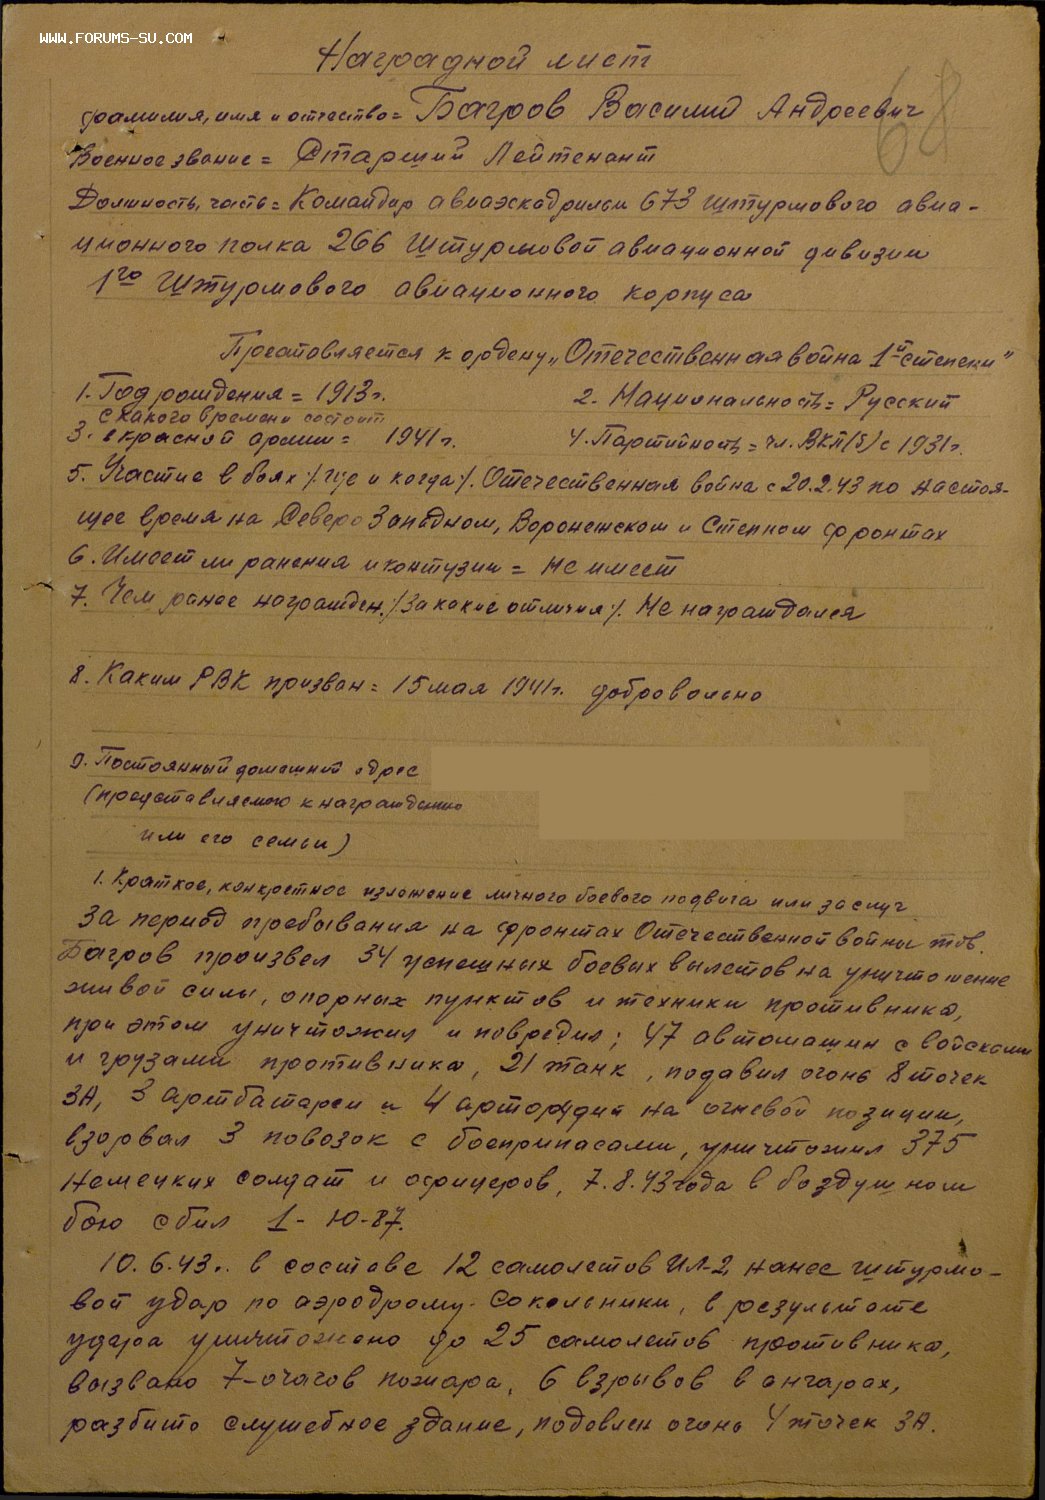 WWW.FORUMS-SU.COM
Наградной лист
68
фамилия, имя и отчество = Багров Василий Андреевич
Военное звание = Старший Лейтенант
Должность, часть = Командир авиаэскадрильи 673 штурмового авиа-
ционного полка 266 Штурмовой авиационной дивизии
1го Штурмового авиационного корпуса
Представляется к ордену „Отечественная война 1й степени"
1. Год рождения = 1913г.
2. Национальность = Русский
с какого времени состоит
3. в красной армии = 1941г.
4. Партийность = чл. ВКП(б) с 1931г.
5. Участие в боях /где и когда/. Отечественная война с 20.2.43 по настоя-
щее время на Северо Западном, Воронежском и Степном фронтах
6. Имеет ли ранения и контузии = Не имеет
7. Чем ранее награжден /За какие отличия/. Не награждался
8. Каким РВК призван = 15 мая 1941г. добровольно
9. Постоянный домашний адрес
(представляемого к награждению
или его семьи)
1. Краткое, конкретное изложение личного боевого подвига или заслуг
За период пребывания на фронтах Отечественной войны тов.
Багров произвел 34 успешных боевых вылетов на уничтожение
живой силы, опорных пунктов и техники противника,
при этом уничтожил и повредил; 47 автомашин с войсками
и грузами противника, 21 танк, подавил огонь 8 точек
ЗА, 3 артбатареи и 4 арторудий на огневой позиции,
взорвал 3 повозок с боеприпасами, уничтожил 375
немецких солдат и офицеров, 7.8.43 года в воздушном
бою сбил 1 - Ю-87.
10.6.43г. в составе 12 самолетов ИЛ-2, нанес штурмо-
вой удар по аэродрому Сокольники, в результате
удара уничтожено до 25 самолетов противника,
вызвано 7-очагов пожара, 6 взрывов в ангарах,
разбито служебное здание, подавлен огонь 4 точек ЗА.